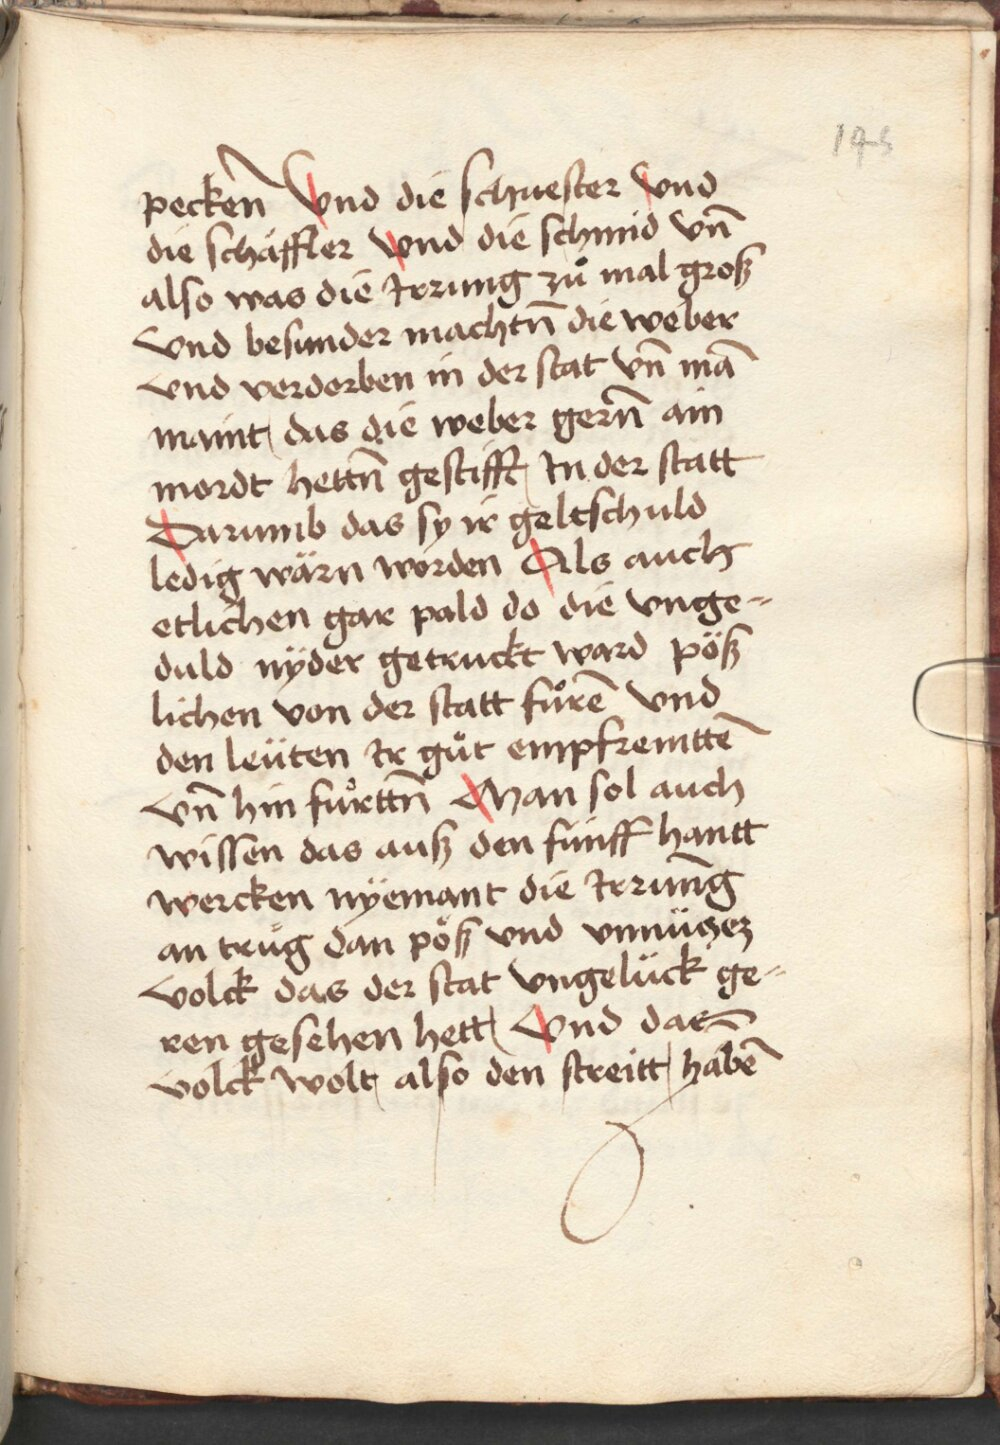 145
pecken̄ Vnd die schuester Vnd
die schäffler Vnd die schmid Vn̄
also was die Irrung zů mal groß
Vnd besunder machtn̄ die weber
Vnd verdorben in der stat Vn̄ mā
maint das die weber gern̄ ain
mordt hettn̄ gestifft In der statt
Darumb das sy ir geltschuld
ledig wärn worden Als auch
etlichen gar pald do die vnge⸗
duld nÿder getruckt ward pöß
lichen von der statt fůrē Vnd
den leüten Ir gůt empfremttē
Vn̄ hin fůrttn̄ Man sol auch
wissen das auß den fünff hantt
wercken nÿemant die Irrūng
an trůg dan pöß vnd vnnüczez
volck das der stat vngelück ge⸗
ren gesehen hett Vnd das
volck wolt also den streitt habē